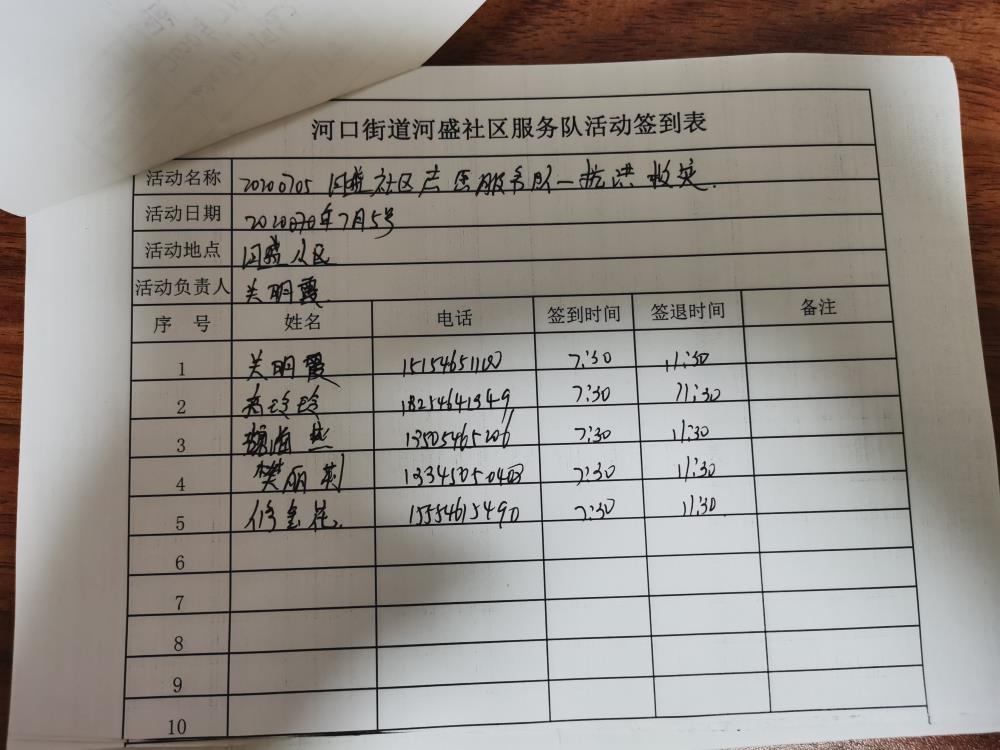 河口街道河盛社区服务队活动签到表
活动名称 20200705 社区 服务队一抗洪救灾
活动日期 2020年7月5号
活动地点 区
活动负责人 关明霞
序 号 姓名 电话 签到时间 签退时间 备注
1 关明霞 15154651100 7:30 11:30
2 高珍珍 18254641349 7:30 11:30
3 13505465206 7:30 11:30
4 樊丽利 13345050403 7:30 11:30
5 修金花 15554615490 7:30 11:30
6
7
8
9
10